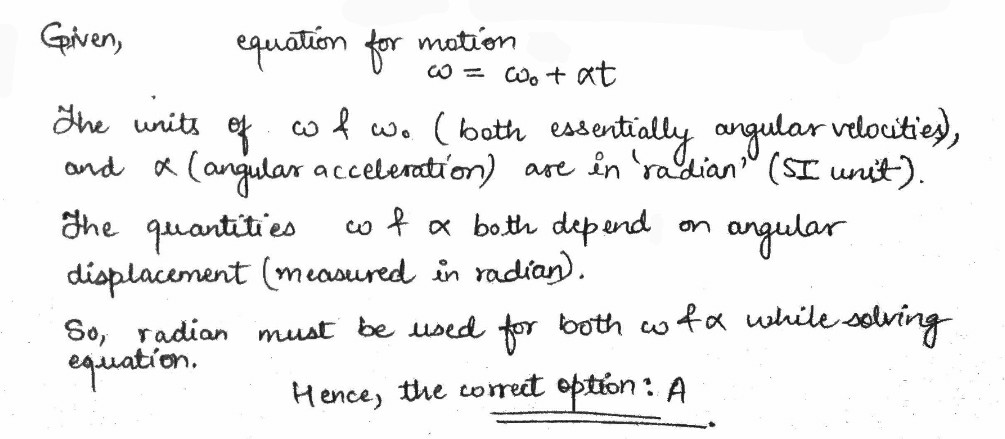 Given, equation for motion
ω = ω₀ + αt
The units of ω & ω₀ (both essentially angular velocities),
and α (angular acceleration) are in 'radian' (SI unit).
The quantities ω & α both depend on angular
displacement (measured in radian).
So, radian must be used for both ω & α while solving
equation.
Hence, the correct option: A